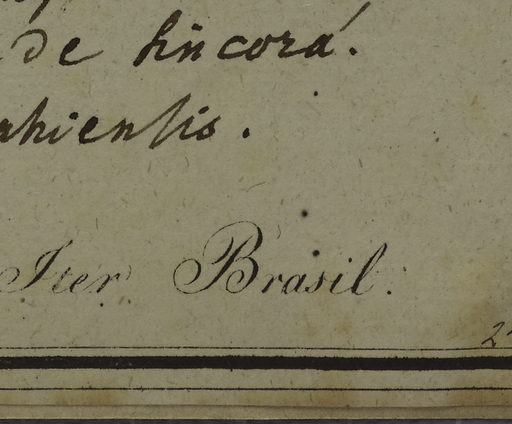 de Sincorá.
ahiensis.
Iter Brasil.
2